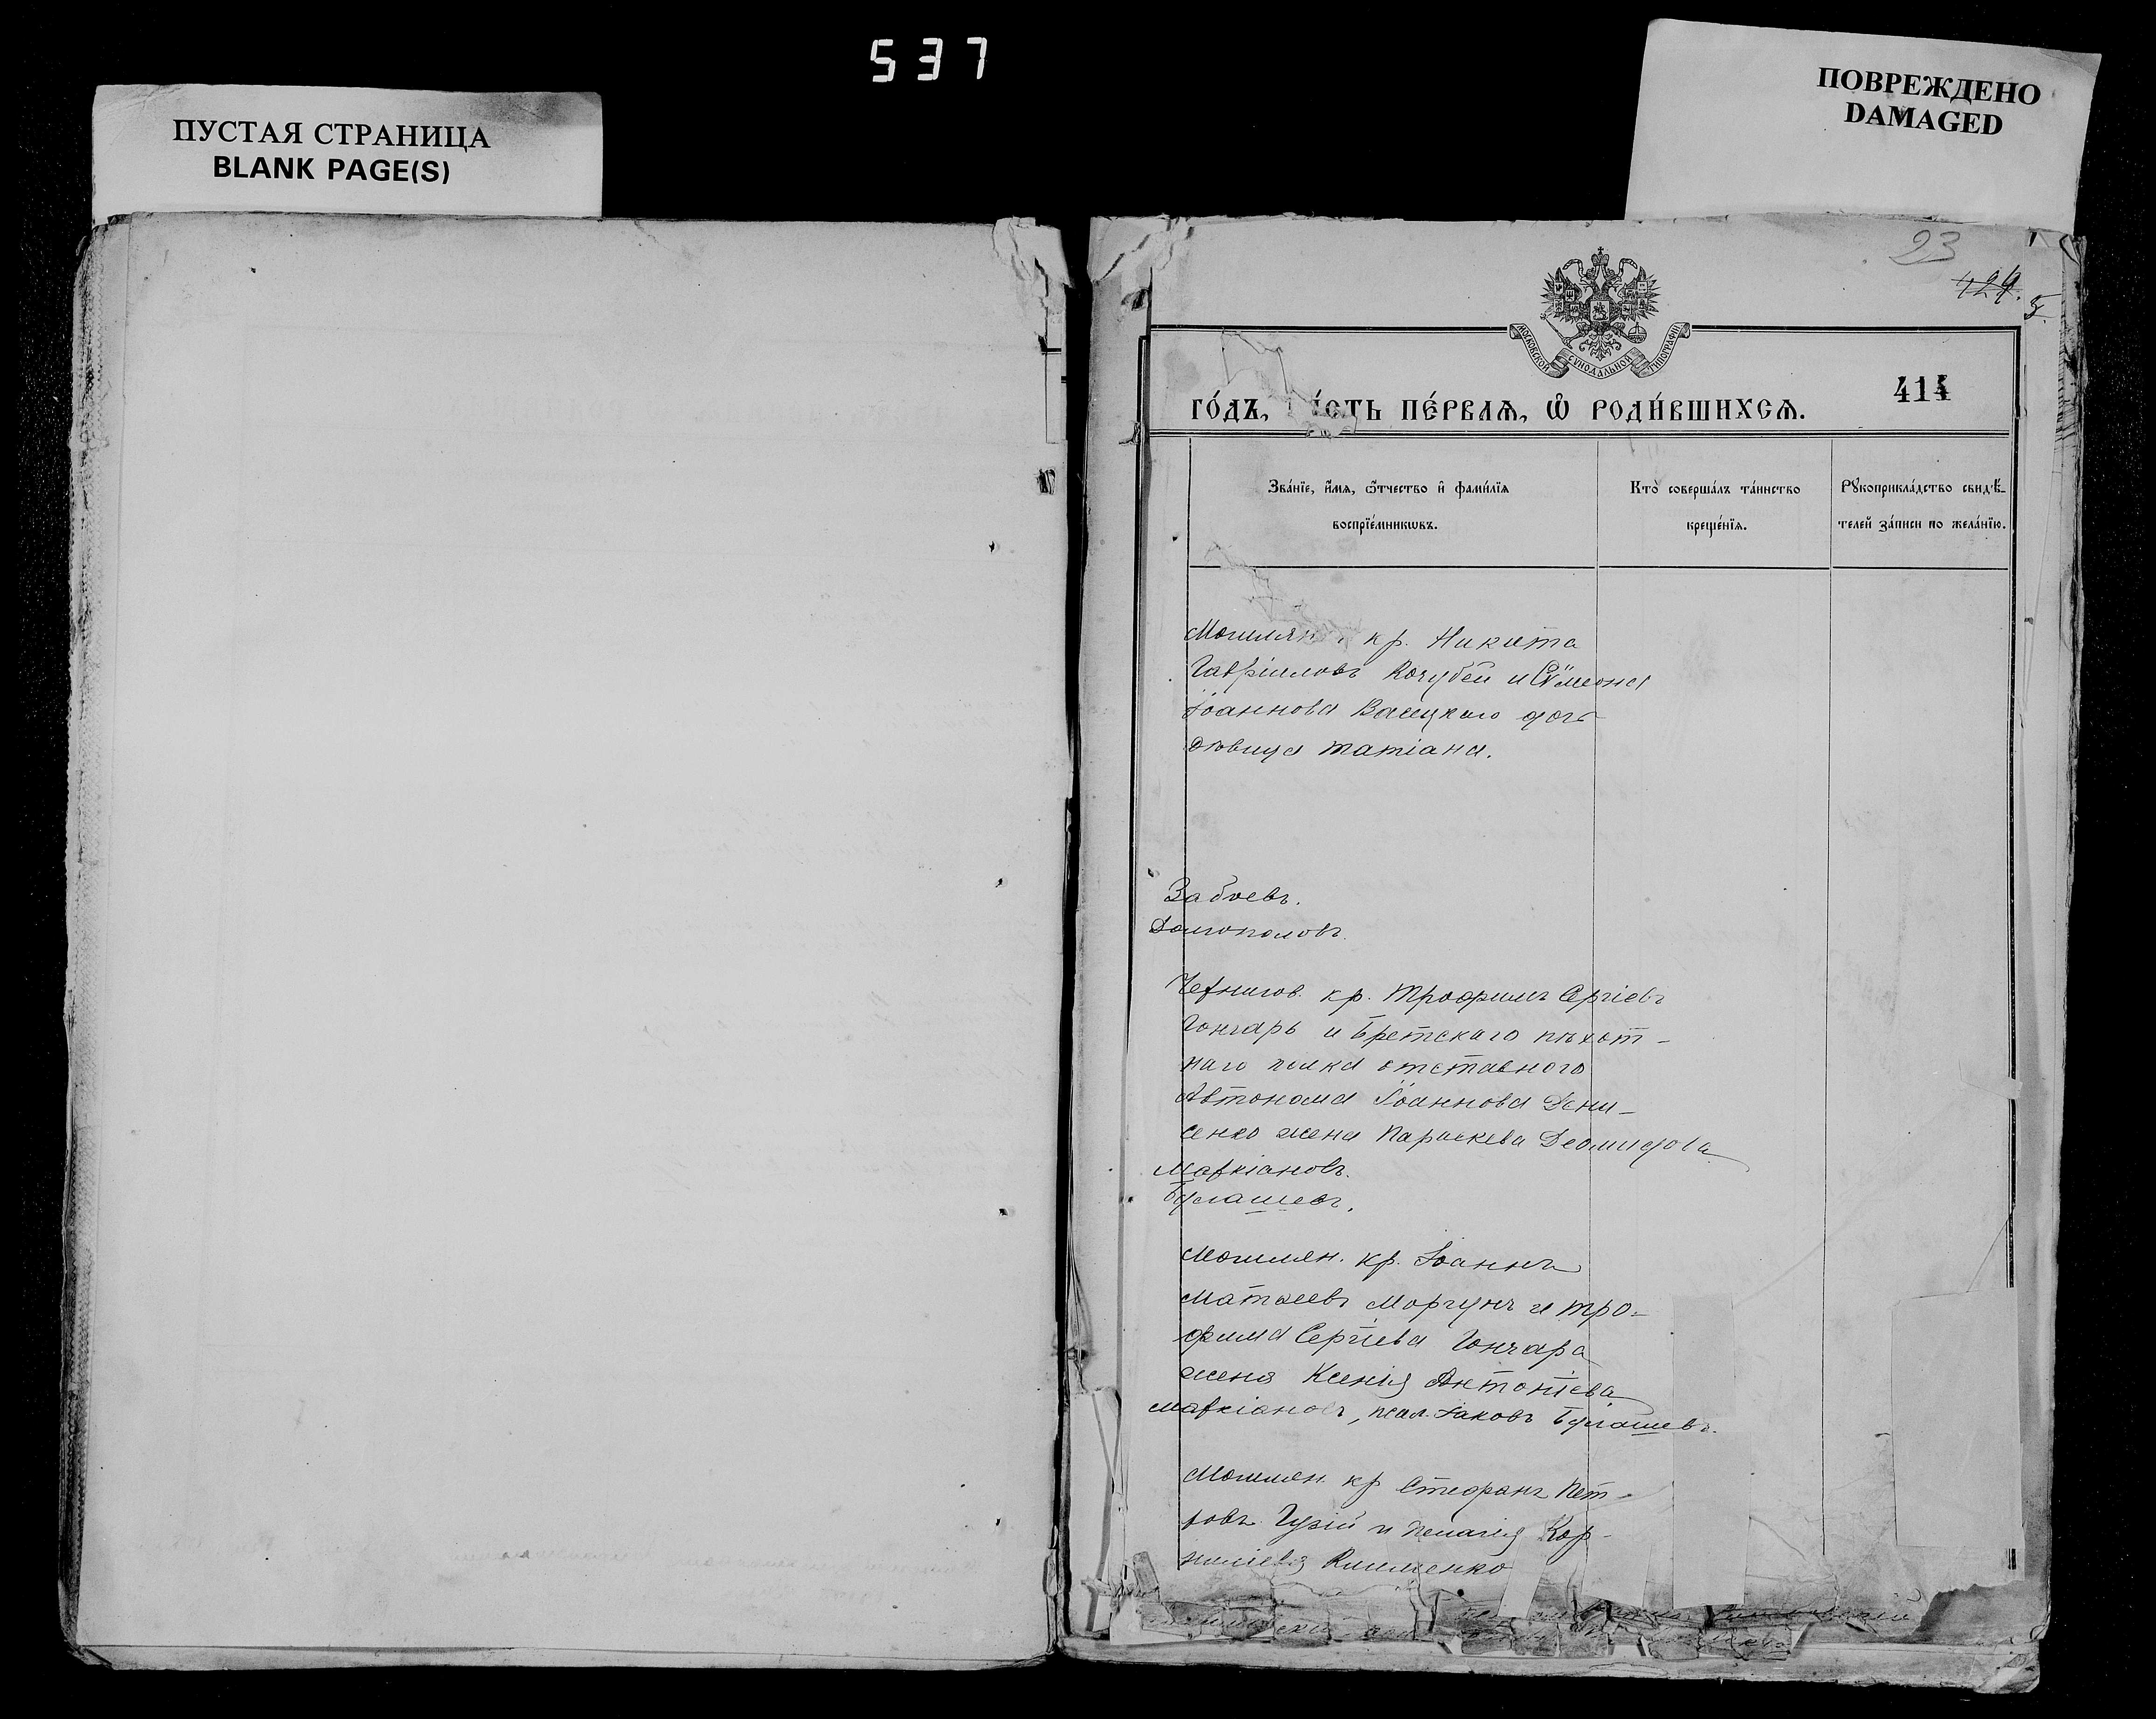 537
ПУСТАЯ СТРАНИЦА
BLANK PAGE(S)
ПОВРЕЖДЕНО
DAMAGED
23
429.
5.
МОСКОВСКОЙ СѴНОДАЛЬНОЙ ТИПОГРАФІИ
414
го́дъ, ча́сть пе́рваѧ, ѡ҆ роди́вшихсѧ.
Зва́нїе, и҆́мѧ, ѻ҆́тчество и҆ фами́лїѧ
воспрїе́мникѡвъ.
Кто̀ соверша́лъ та́инство
креще́нїѧ.
Рꙋкоприкла́дство свидѣ́-
телей за́писи по жела́нїю.
кр. Никита
Гавріиловъ Кочубей и Сѵмеона
Іоаннова дочь
дѣвица Татіана.
Забоевъ.
Долгополовъ.
Чернигов. кр. Трофимъ Сергіевъ
Гончаръ и Бретскаго пѣхот-
наго полка отставного
Автонома Іоаннова Дени-
сенко жена Параскева Деомидова
Маркіановъ.
Булашевъ.
Могилян. кр. Іоаннъ
Матѳеевъ Моргунъ и Тро-
фима Сергіева Гончара
жена Ксенія Антоніева
Маркіановъ, псал. Іаковъ Булашевъ.
Могилян. кр Стефанъ Пет-
ровъ Гузій и Пелагія Кор-
ниліева Клименко